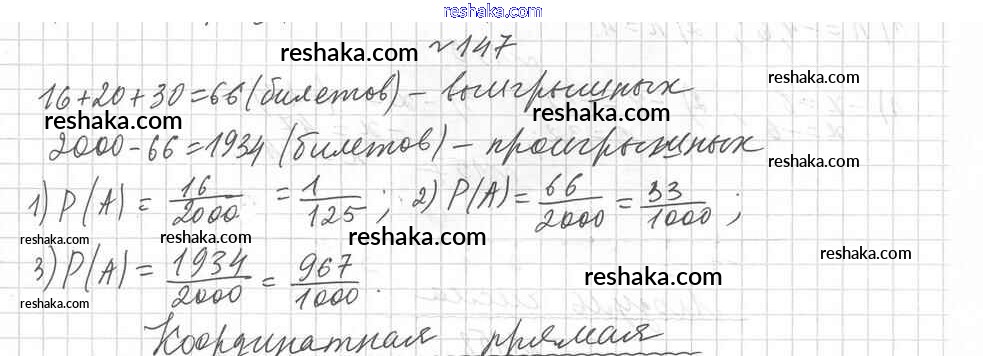 www.reshaka.com
reshaka.com
№147
reshaka.com
16+20+30=66 (билетов) – выигрышных
reshaka.com
reshaka.com
2000-66=1934 (билетов) – проигрышных
reshaka.com
1) P(A) = 16/2000 = 1/125; 2) P(A) = 66/2000 = 33/1000;
reshaka.com
reshaka.com
reshaka.com
reshaka.com
3) P(A) = 1934/2000 = 967/1000.
reshaka.com
reshaka.com
Координатная прямая